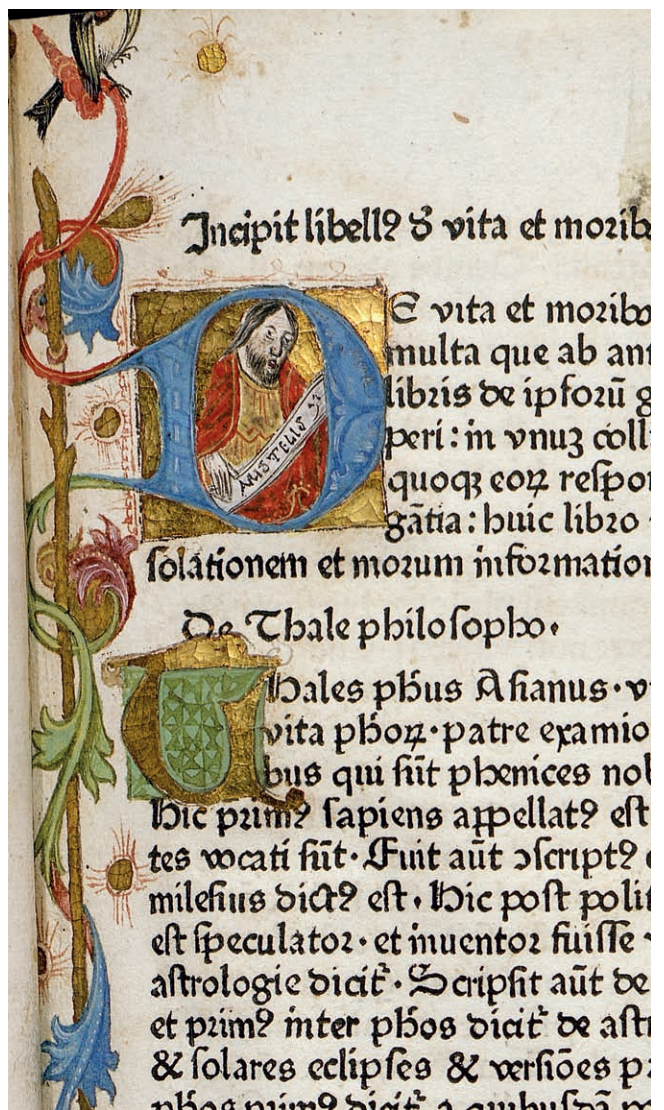 Incipit libellꝰ ð vita et morib
DE vita et moribo
multa que ab ant
libris de ipſorū g
peri: in vnuʒ colli
quoqʒ eoꝝ reſpon
gātia: huic libro
ARISTELIS
ſolationem et morum information
De Thale philoſopho.
Thales pħus Aſianus · v
vita pħoꝝ · patre examio
bus qui ſūt phenices nob
Hic primꝰ ſapiens appellatꝰ eſt
tes vocati ſūt · Fuit aūt ↄſcriptꝰ
mileſius dictꝰ eſt. Hic poſt polit
eſt ſpeculator · et inuentor fuiſſe
aſtrologie dicit᷑ · Scripſit aūt de
et primꝰ inter pħos dicit᷑ de aſtr
& ſolares eclipſes & verſiōes
pħos primꝰ dicit᷑ a quibuſdā